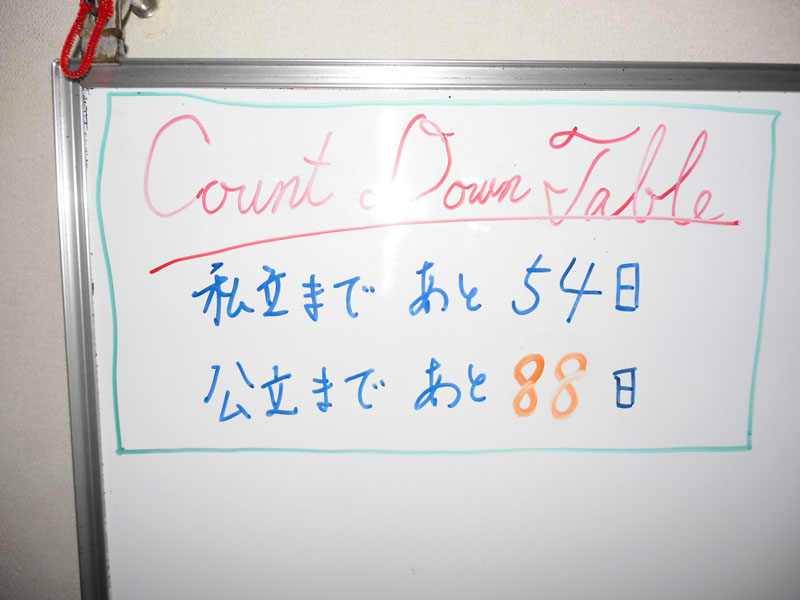 Count Down Table
私立まで あと 54日
公立まで あと 88日